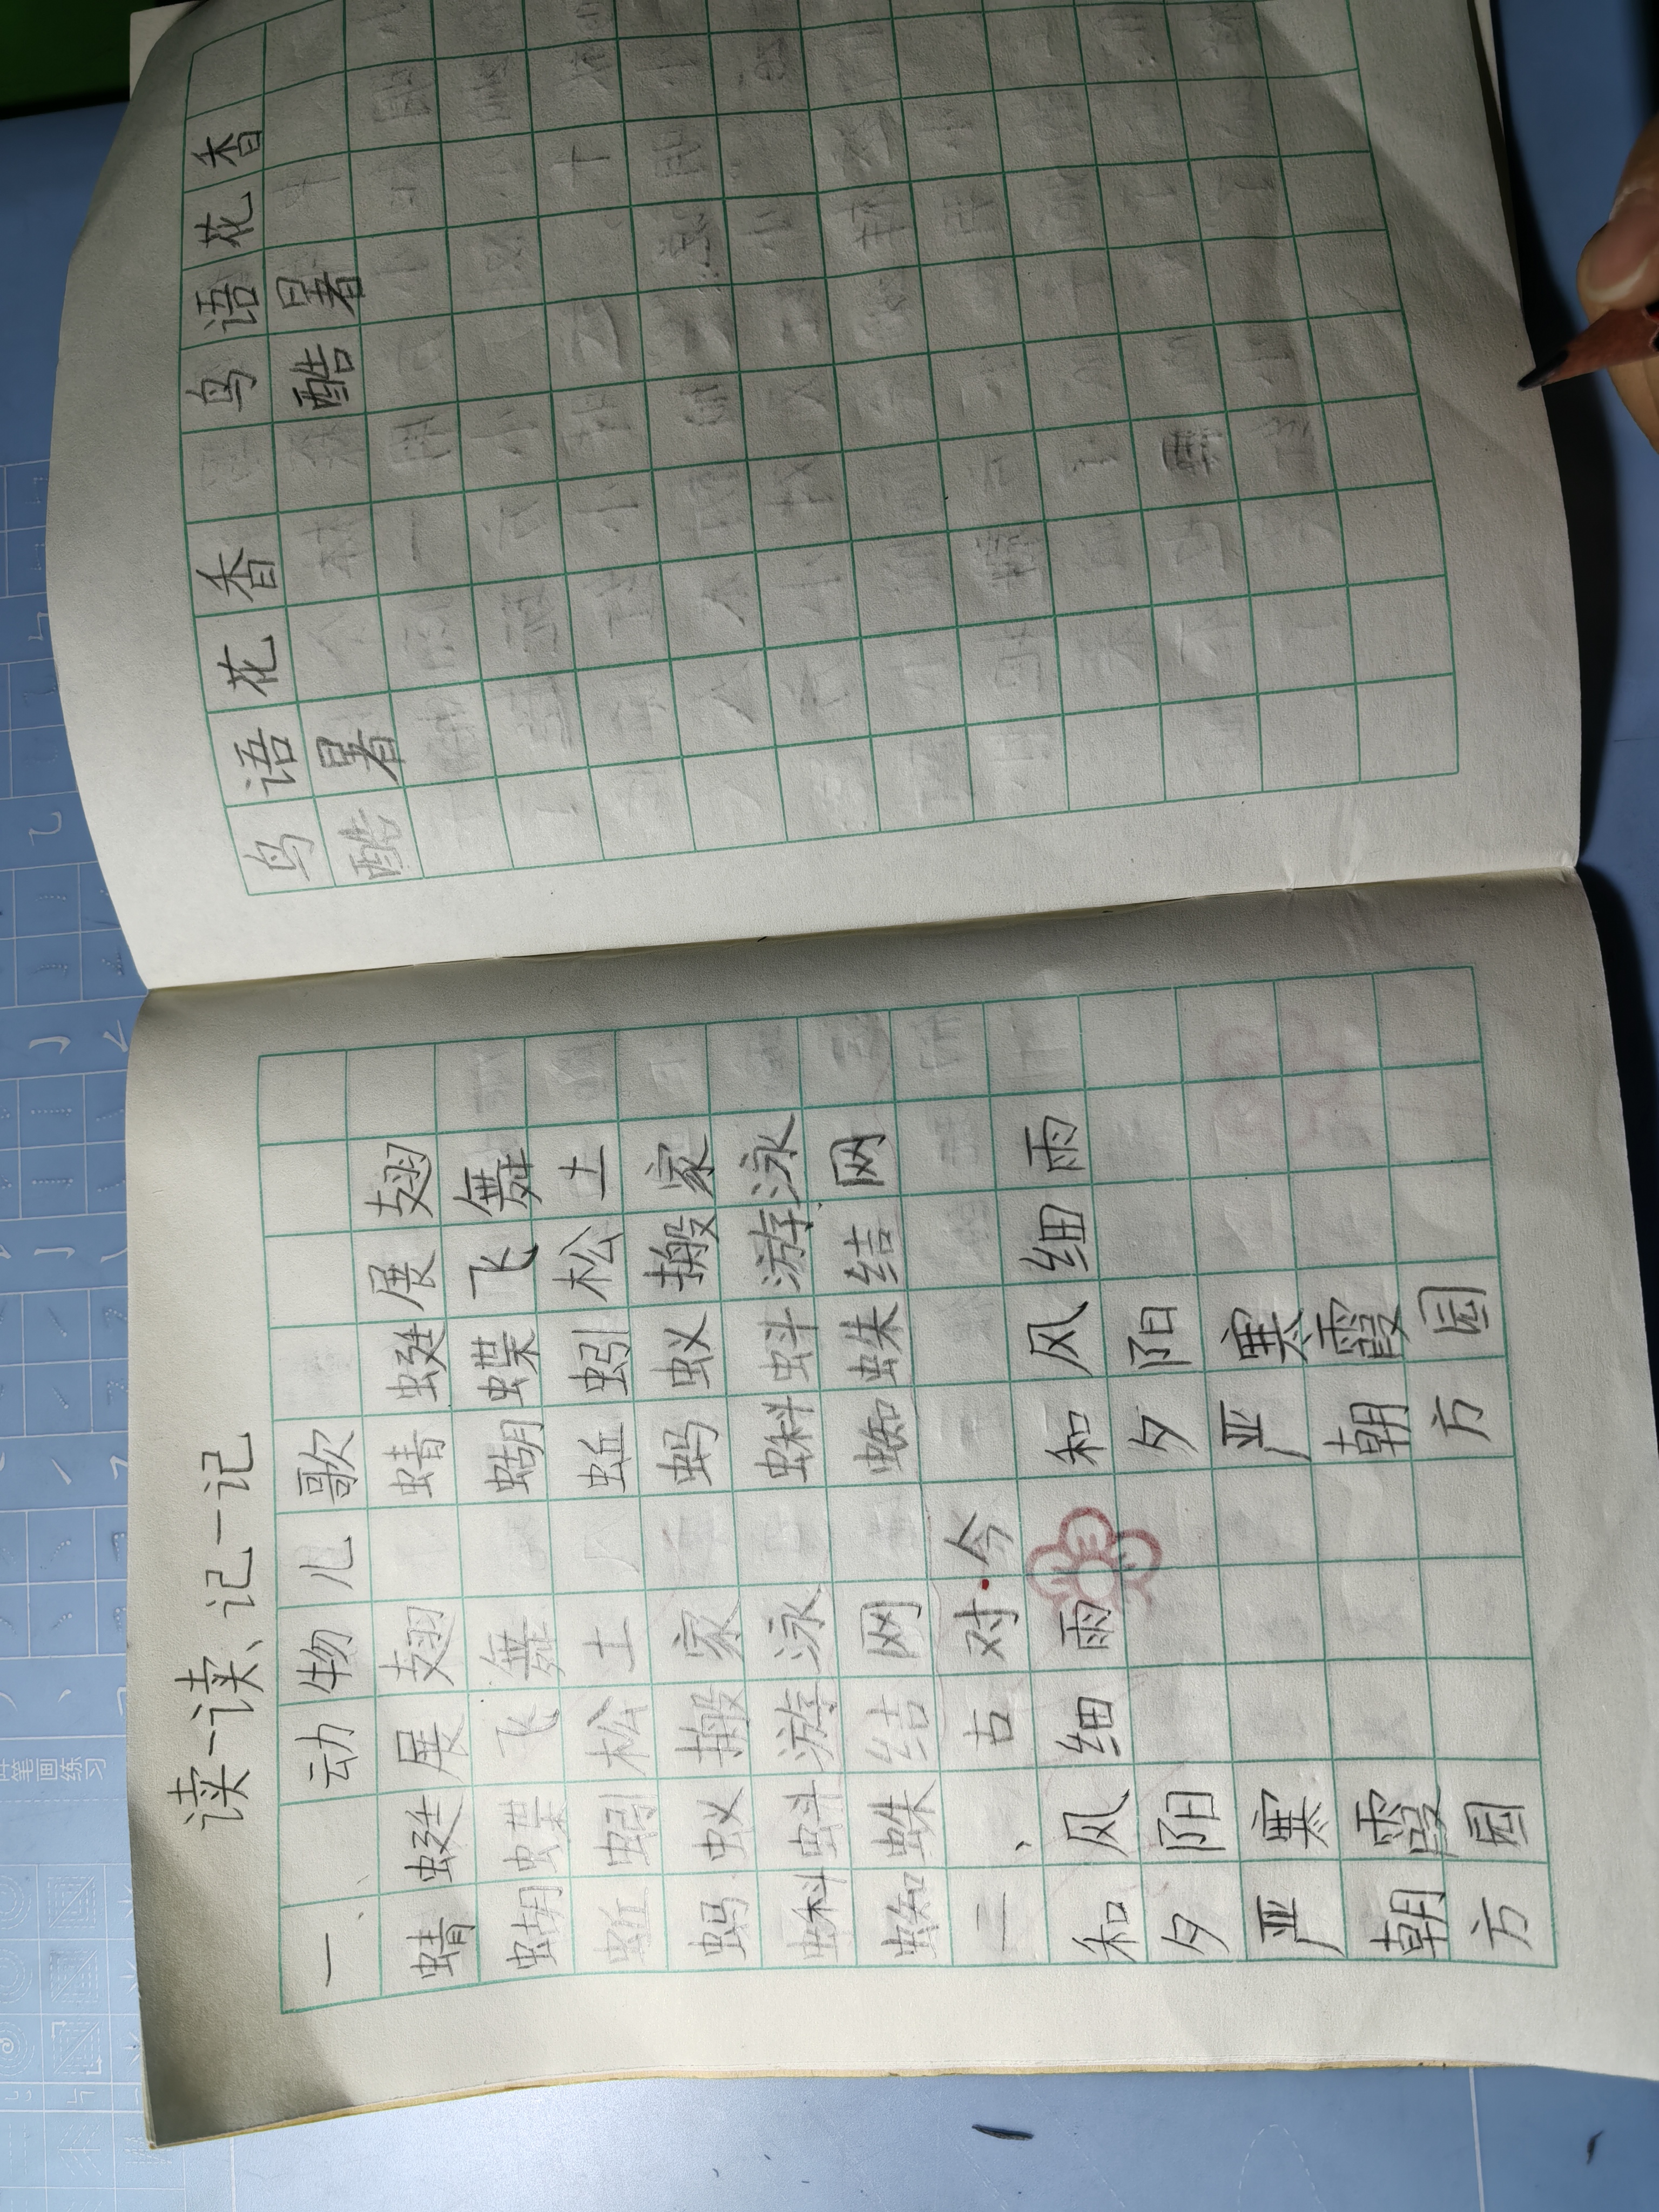 读一读、记一记
一、动物儿歌
蜻蜓展翅 蜻蜓展翅
蝴蝶飞舞 蝴蝶飞舞
蚯蚓松土 蚯蚓松土
蚂蚁搬家 蚂蚁搬家
蝌蚪游泳 蝌蚪游泳
蜘蛛结网 蜘蛛结网
二、古对今
和风细雨 和风细雨
夕阳 夕阳
严寒 严寒
朝霞 朝霞
方园 方园
鸟语花香 鸟语花香
酷暑 酷暑
笔画练习